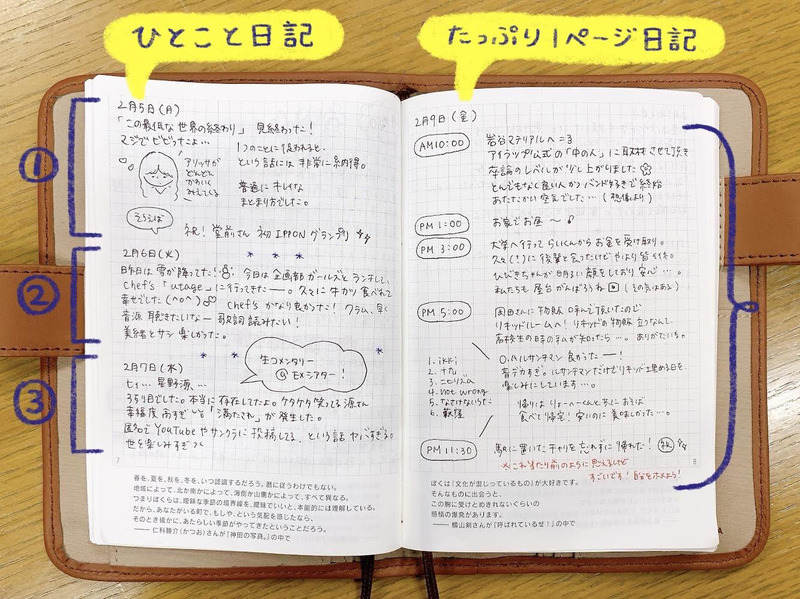 ひとこと日記
たっぷり1ページ日記
①
2月5日(月)
「この最低な世界の終わり」 見終わった!
マジでビビったよ…
アリッサが
どんどん
かわいく
みえてくる
1つのことに従われると、
という話には非常に納得。
普通にキレイな
まとまり方でした。
そういえば
祝!堂前さん 初IPPONグランプリ
②
2月6日(火)
昨日は雪が降ってた! 今日は企画部ガールズとランチして、
Chef's「utage」に行ってきたー。久々に牛カツ食べれて
幸せでした(^o^) Chef'sかなり良かった!クラム、早く
音源聴きたいなー歌詞読みたい!
美緒とサシ楽しかった。
③
2月7日(水)
生コメンタリー
@EXシアター!
ヒィ…星野源…
3うり目でした。本当に存在してたよ。ケタケタ笑ってる源さん
幸福度高すぎて「満たされ」が発生した。
匿名でYouTubeやサンクラに投稿してる、という話ヤバすぎる。
世を楽しみすぎ
7
春を、夏を、秋を、冬を、いつ認識するだろう。暦に従うわけでもない。
地域によって、北か南かによって、海側か山側かによって、すべて異なる。
つまりぼくらは、曖昧な季節の境界線を、曖昧でいいと、本能的には理解している。
だから、あなたがいる町で、もしや、という気配を感じたなら、
そのとき確かに、あたらしい季節がやってきたということだろう。
――仁科勝介(かつお)さんが『神田の写真。』の中で
2月9日(金)
AM10:00
岩谷マテリアルへ=3
アイラップ公式の「中の人」に取材させて頂き
卒論のレベルが少し上がりました
とんでもなく良い人かつバンド好きで終始
あたたかい空気でした…(恐縮より)
PM 1:00
お家でお昼〜♪
PM 3:00
大学へ行ってらいくんからお金を受け取り。
久々(!)に後輩と会ったけどやはり皆イイ子。
ひびきちゃんが明るい顔をしており安心…。
私たちも屋台がんばろうね(その気はある)
PM 5:00
岡田さんに物販呼んで頂いたので
リキッドルームへ!リキッドの物販立つなんて、
高校生の時の私が知ったら…。ありがたいち。
1. ikki
2. 十九
3. ニヒリズム
4. not wrong
5. なさけないうた
6. 歓窪
O.ルサンチマン良かったー!
音デカすぎ。ルサンチマンだけでリキッド埋める日を、
楽しみにしています…。
帰りはりょーへーくんと共におそば
食べて帰宅!安いのに美味しかった…。
PM 11:30
駅に置いたチャリを忘れずに帰れた! 祝
※これ当たり前のように思えるけど
すごいです!自分をホメよう!
8
ぼくは「文化が混じっているもの」が大好きです。
そんなものに出会うと、
この胸に受けとめきれないくらいの
感情の爆発があります。
――横山剣さんが『呼ばれているぜ!』の中で